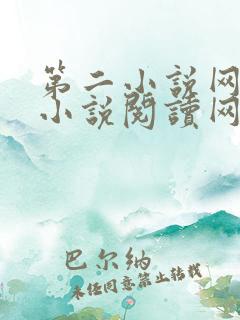 第二小说网
小说閱讀网
巴尔纳
未经同意禁止转载